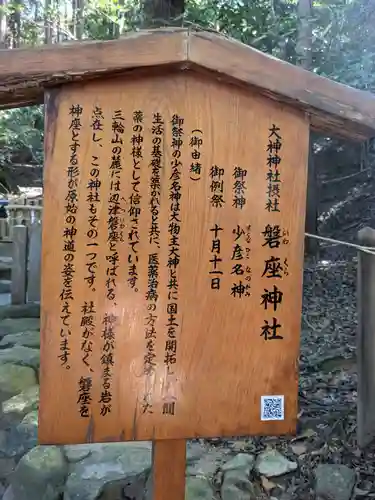 大神神社摂社 磐座神社
いわ くら
御祭神 少彦名神
すくな ひこ なのかみ
御例祭 十月十一日
(御由緒)
御祭神の少彦名神は大物主大神と共に国土を開拓し、人間
生活の基礎を築かれると共に、医薬治病の方法を定められた
薬の神様として信仰されています。
三輪山の麓には辺津磐座と呼ばれる、神様が鎮まる岩が
へつ いわくら
点在し、この神社もその一つです。社殿がなく、磐座を
神座とする形が原始の神道の姿を伝えています。